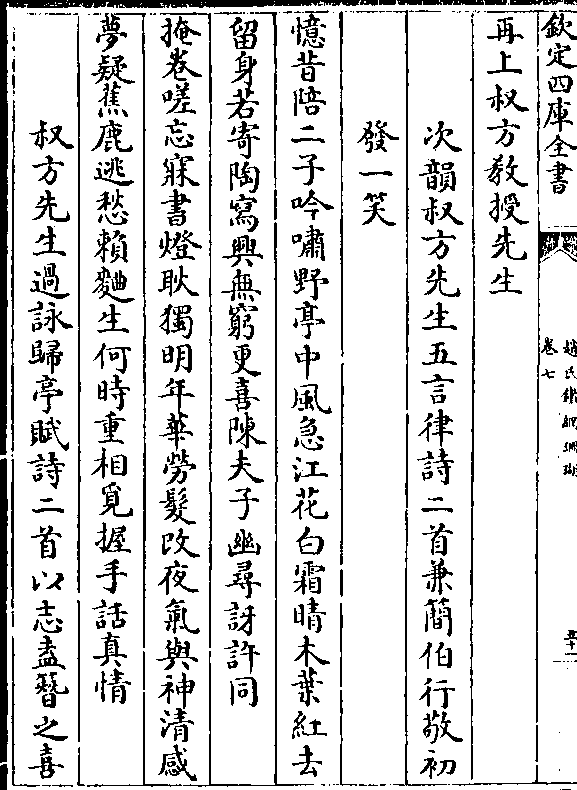 欽定四庫全書
趙氏鐵網珊瑚
卷七
五十一
再上叔方教授先生
次韻叔方先生五言律詩二首兼簡伯行敬初
發一笑
憶昔陪二子吟嘯野亭中風急江花白霜晴木葉紅去
留身若寄陶寫興無窮更喜陳夫子幽尋訝許同
掩卷嗟忘寐書燈耿獨明年華勞髮改夜氣與神清感
夢疑蕉鹿逃愁賴麯生何時重相覓握手話真情
叔方先生過詠歸亭賦詩二首以志盍簪之喜